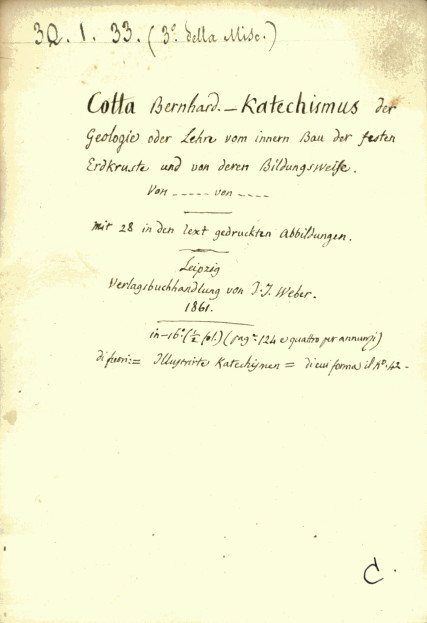 32. 1. 33. (3º della Misc.)
Cotta Bernhard. — Katechismus der
Geologie oder Lehre vom innern Bau der festen
Erdkruste und von deren Bildungsweise.
Von ----- von ----
mit 28 in den text gedruckten Abbildungen.
Leipzig
Verlagsbuchhandlung von J. J. Weber.
1861.
in-16º (½ fol.) (pag.e 124 e quattro per annunzj)
di fuori: = Illustrirte Katechismen = di cui forma il Nº. 42 -
C.